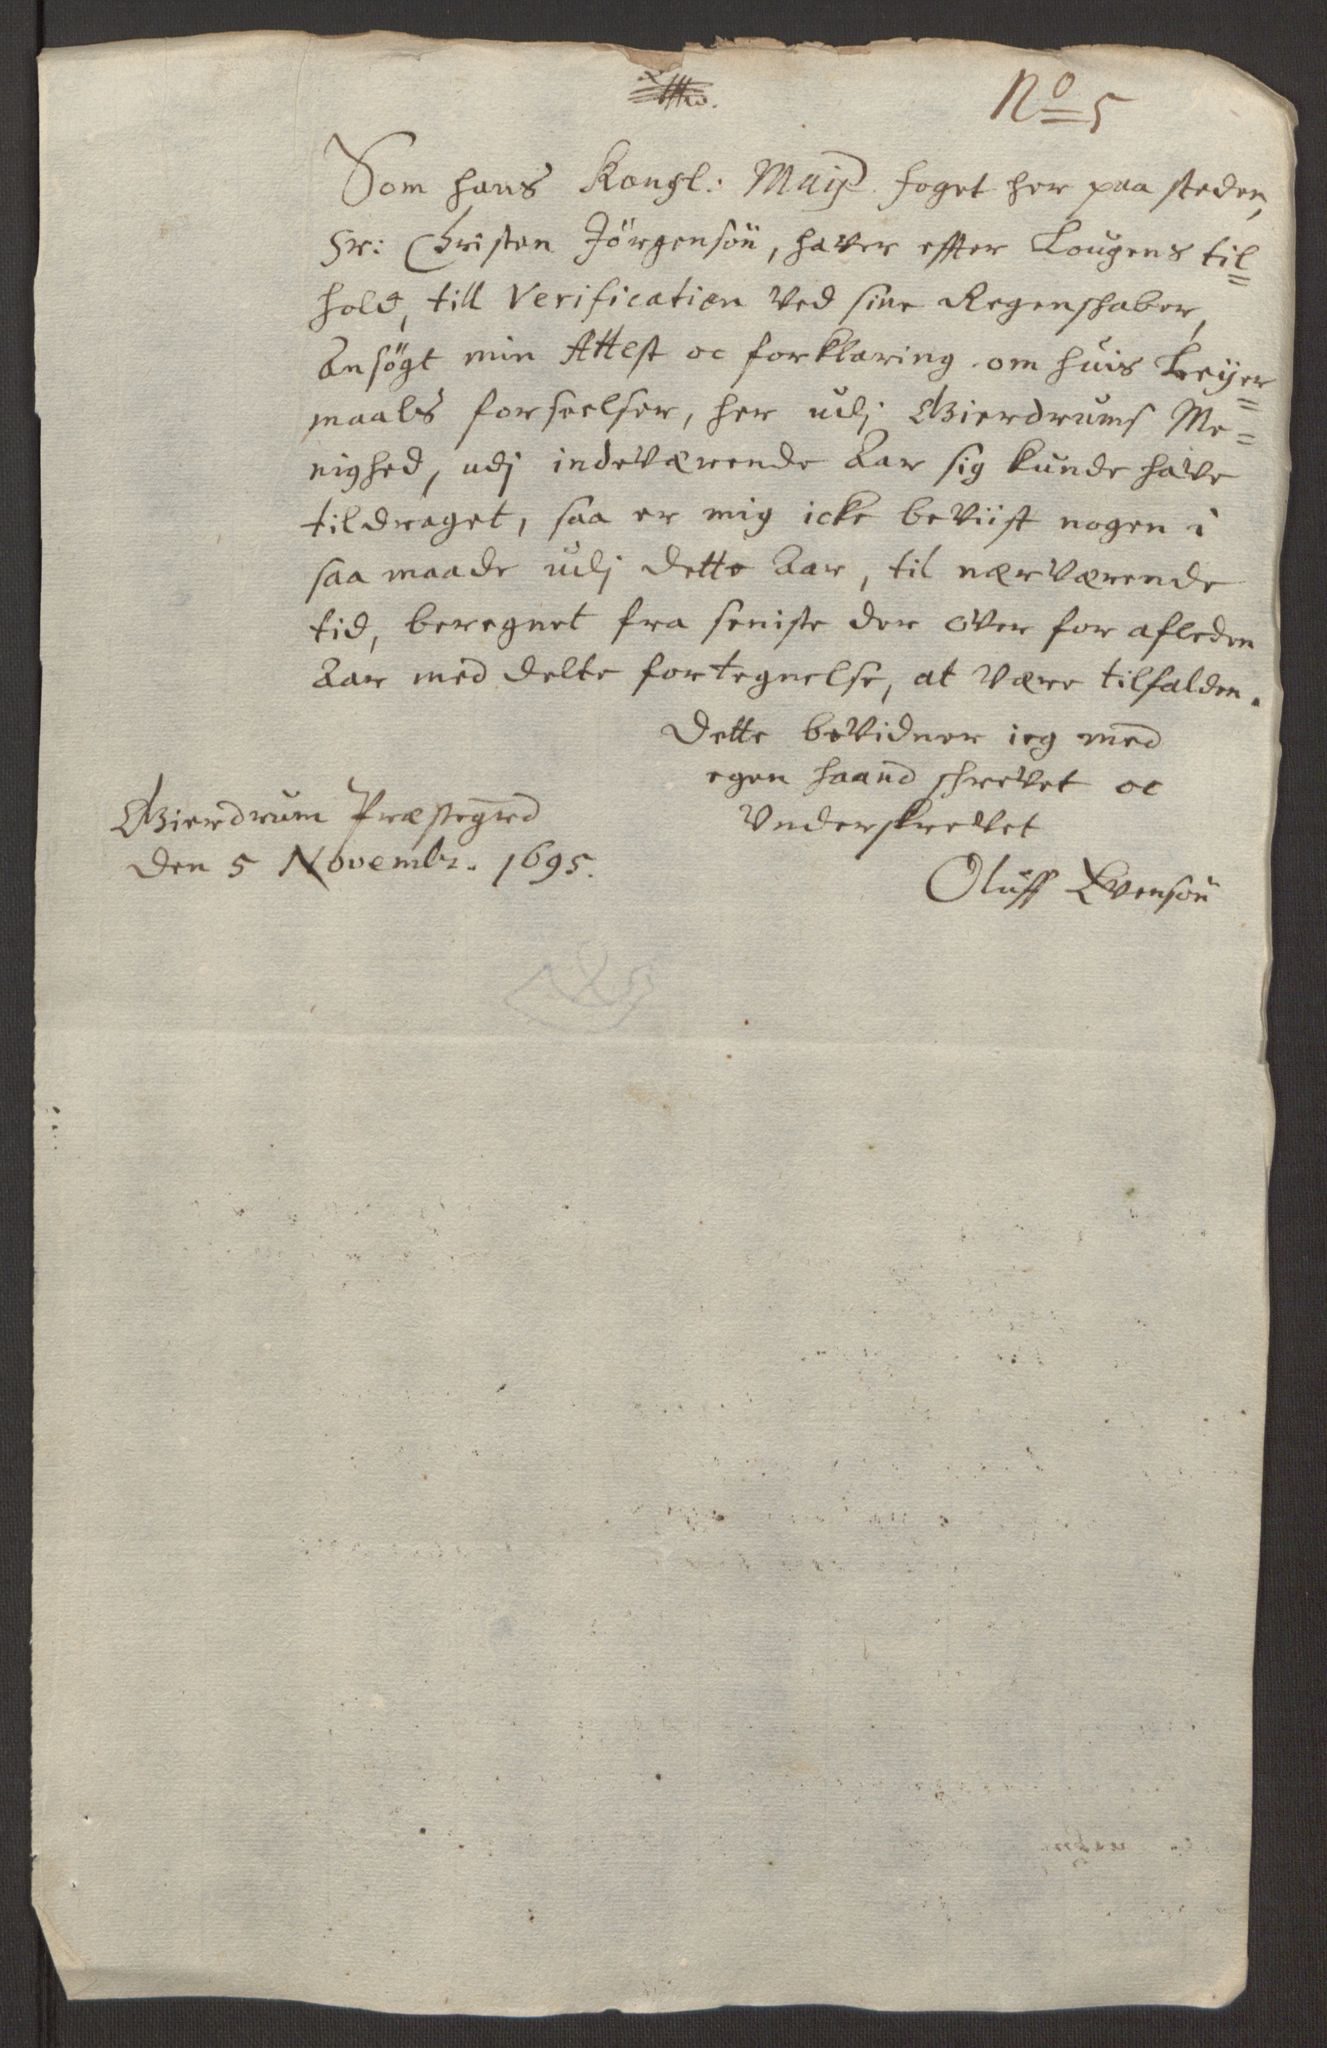 No 5
Som hans Kongl: Maijts. foget her paa steden,
Sr: Christen Jörgensön, haver effter Lougens til=
hold, till Verification Ved sine Regenschaber,
Ansögt min Attest oc forklaring om huis Leijer=
maals forseelser, her udj Gierdrums Me=
nighed, udj indeværende Aar sig kunde have
tildraget, saa er mig icke beviist nogen i
saa maade udj dette Aar, til nærværende
tid, beregnet fra seniste der over for afleden
Aar med delte fortegnelse, at være tilfalden.
Dette beVidner ieg med
egen haand schrevet oc
Underskrevet
Gierdrum Præstegrd
den 5 Novembr. 1695.
Oluff Evensön